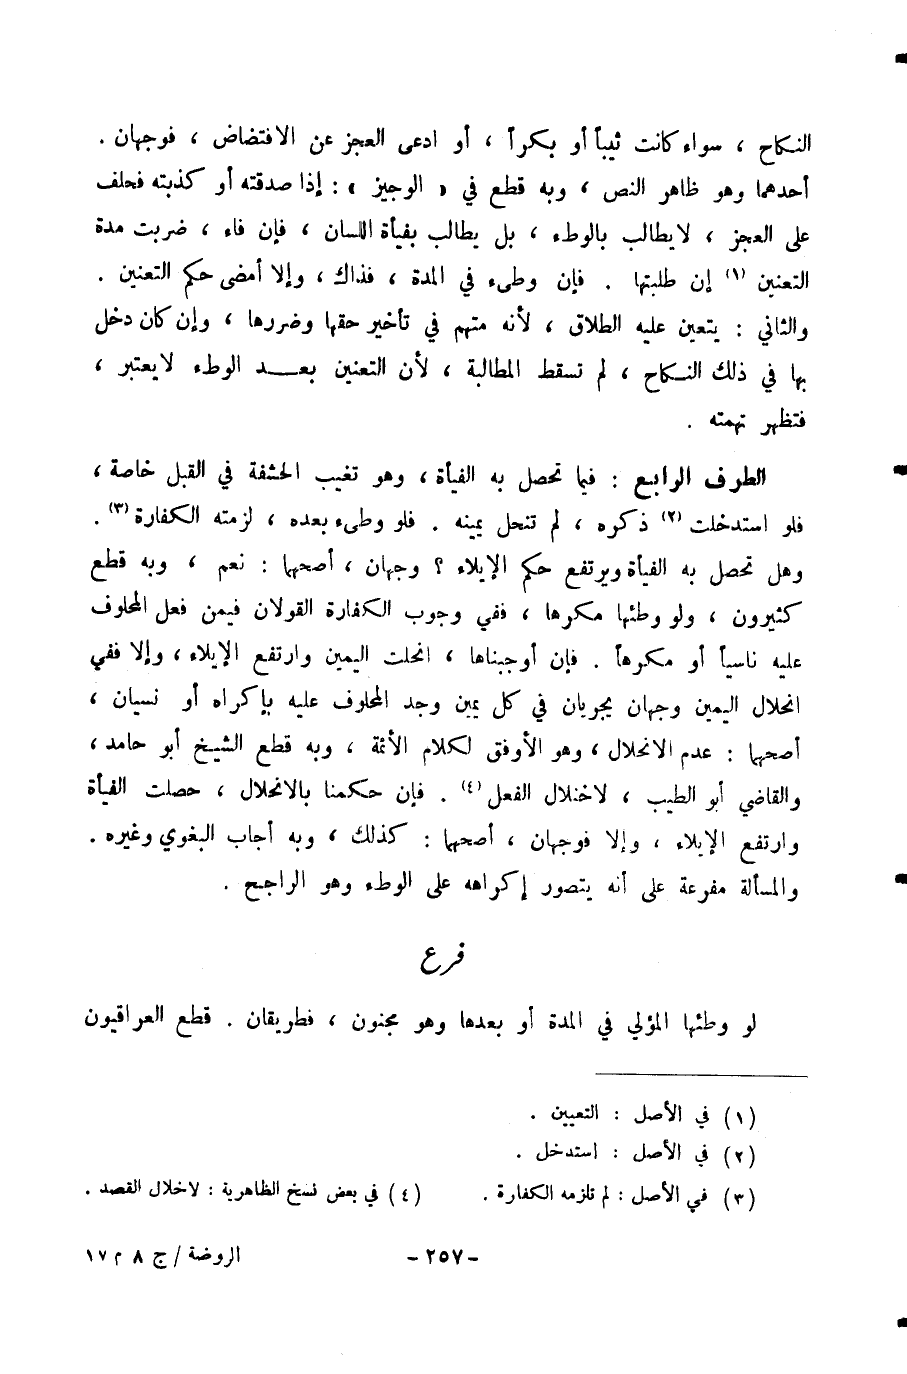 النكاح ، سواء كانت ثيباً أو بكراً ، أو ادعى العجز عن الافتضاض ، فوجهان .
أحدهما وهو ظاهر النص ، وبه قطع في « الوجيز » : إذا صدقته أو كذبته فحلف
على العجز ، لايطالب بالوطء ، بل يطالب بفيأة اللسان ، فإن فاء ، ضربت مدة
التعنين (١) إن طلبتها . فإن وطىء في المدة ، فذاك ، وإلا أمضى حكم التعنين .
والثاني : يتعين عليه الطلاق ، لأنه متهم في تأخير حقها وضررها ، وإن كان دخل
بها في ذلك النكاح ، لم تسقط المطالبة ، لأن التعنين بعد الوطء لايعتبر ،
فتظهر تهمته .
الطرف الرابع : فيما تحصل به الفيأة ، وهو تغيب الحشفة في القبل خاصة ،
فلو استدخلت (٢) ذكره ، لم تنحل يمينه . فلو وطىء بعده ، لزمته الكفارة (٣) .
وهل تحصل به الفيأة ويرتفع حكم الإيلاء ؟ وجهان ، أصحها : نعم ، وبه قطع
كثيرون ، ولو وطئها مكرها ، ففي وجوب الكفارة القولان فيمن فعل المحلوف
عليه ناسياً أو مكرهاً . فإن أوجبناها ، انحلت اليمين وارتفع الإيلاء ، وإلا ففي
انحلال اليمين وجهان يجريان في كل يمين وجد المحلوف عليه بإكراه أو نسيان ،
أصحها : عدم الانحلال ، وهو الأوفق لكلام الأئمة ، وبه قطع الشيخ أبو حامد ،
والقاضي أبو الطيب ، لاختلال الفعل (٤) . فإن حكمنا بالانحلال ، حصلت الفيأة
وارتفع الإيلاء ، وإلا فوجهان ، أصحها : كذلك ، وبه أجاب البغوي وغيره .
والمسألة مفرعة على أنه يتصور إكراهه على الوطء وهو الراجح .
فرع
لو وطئها المؤلي في المدة أو بعدها وهو مجنون ، فطريقان . قطع العراقيون
(١) في الأصل : التعيين .
(٢) في الأصل : استدخل .
(٣) في الأصل : لم تلزمه الكفارة . (٤) في بعض نسخ الظاهرية : لاخلال القصد .
- ٢٥٧ - الروضة / ج ٨ م ١٧